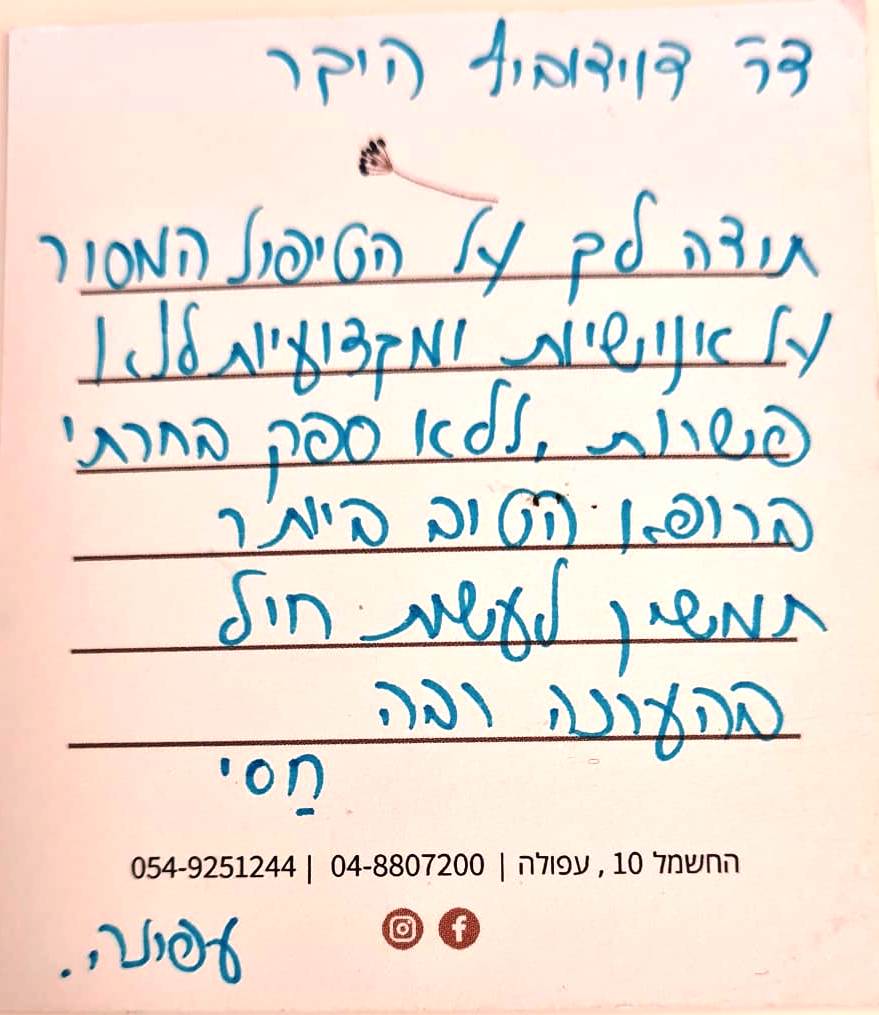 דר דוידוביץ היקר
תודה לך על הטיפול המסור
על אנושיות ומקצועיות ללא
פשרות, ללא ספק בחרתי
ברופא הטוב ביותר
תמשיך לעשות חיל
בהערכה רבה
חַסי
החשמל 10, עפולה | 04-8807200 | 054-9251244
עפולה.